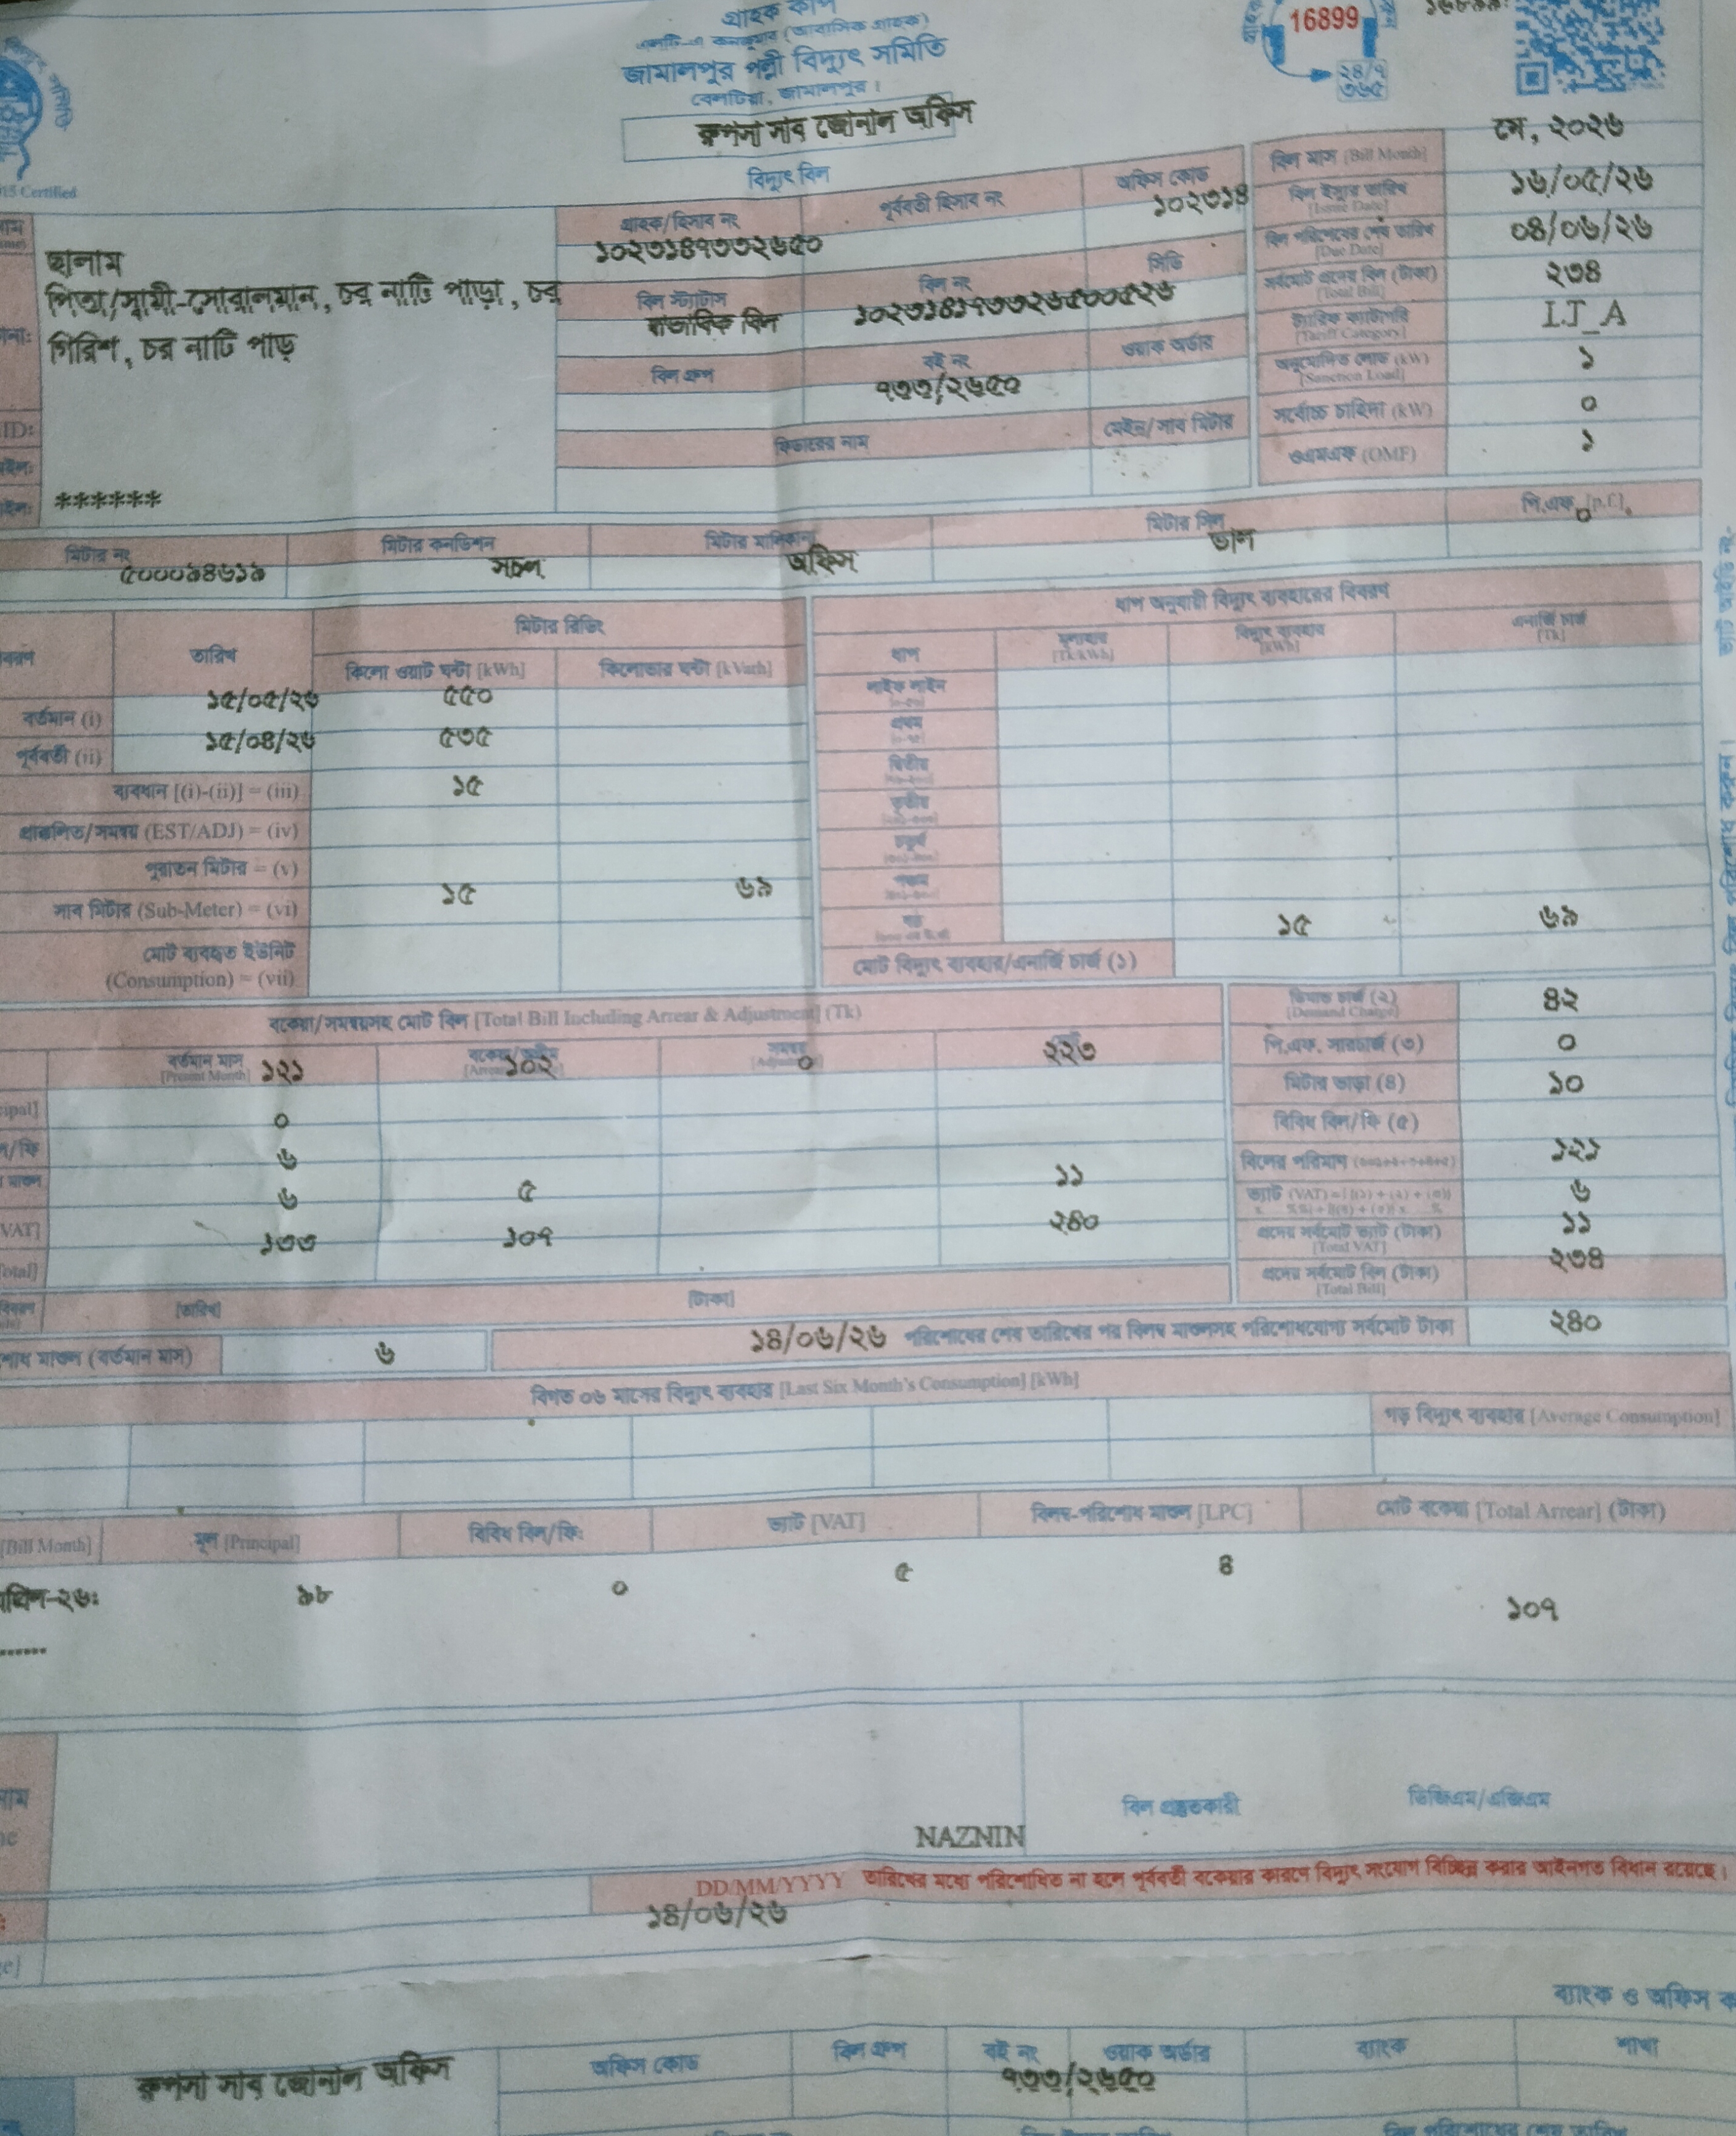 গ্রাহক কপি
এলটি-এ কনজুমার (আবাসিক গ্রাহক)
জামালপুর পল্লী বিদ্যুৎ সমিতি
বেলটিয়া, জামালপুর।
রুপসা সাব জোনাল অফিস
16899
২৪/৭
৩৬৫
বিদ্যুৎ বিল
বিল মাস [Bill Month] মে, ২০২৬
বিল ইস্যুর তারিখ [Issue Date] ১৬/০৫/২৬
বিল পরিশোধের শেষ তারিখ [Due Date] ০৪/০৬/২৬
সর্বমোট প্রদেয় বিল (টাকা) [Total Bill] ২৩৪
ট্যারিফ ক্যাটাগরি [Tariff Category] LT_A
অনুমোদিত লোড (kW) [Sanction Load] ১
সর্বোচ্চ চাহিদা (kW) ০
ওএমএফ (OMF) ১
গ্রাহক/হিসাব নং পূর্ববর্তী হিসাব নং অফিস কোড
১০২৩১৪৭৩৩২৬৫০ ১০২৩১৪
বিল স্ট্যাটাস বিল নং সিডি
স্বাভাবিক বিল
বিল গ্রুপ বই নং ওয়াক অর্ডার
৭৩৩/২৬৫০
ফিডারের নাম মেইন/সাব মিটার
ছালাম
পিতা/স্বামী-সোরালমান, চর নাটি পাড়া, চর
গিরিশ, চর নাটি পাড়
ID:
******
মিটার নং মিটার কনডিশন মিটার মালিকানা মিটার সিল পি.এফ. [p.f.]
৫০০০৯৪৬১৯ সচল অফিস ভাল ০
মিটার রিডিং
তারিখ কিলো ওয়াট ঘন্টা [kWh] কিলোভার ঘন্টা [kVarh]
বর্তমান (i) ১৫/০৫/২৬ ৫৫০
পূর্ববর্তী (ii) ১৫/০৪/২৬ ৫৩৫
ব্যবধান [(i)-(ii)] = (iii) ১৫
প্রাক্কলিত/সমন্বয় (EST/ADJ) = (iv)
পুরাতন মিটার = (v)
সাব মিটার (Sub-Meter) = (vi) ১৫ ৬৯
মোট ব্যবহৃত ইউনিট
(Consumption) = (vii)
ধাপ অনুযায়ী বিদ্যুৎ ব্যবহারের বিবরণ
ধাপ মূল্যহার [Tk/kWh] বিদ্যুৎ ব্যবহার [kWh] এনার্জি চার্জ [Tk]
লাইফ লাইন
প্রথম
দ্বিতীয়
তৃতীয়
চতুর্থ
পঞ্চম
১৫ ৬৯
মোট বিদ্যুৎ ব্যবহার/এনার্জি চার্জ (১)
বকেয়া/সমন্বয়সহ মোট বিল [Total Bill Including Arrear & Adjustment] (Tk)
বর্তমান মাস [Present Month] ১২১ ১০২ ০ ২২৩
০
৬
৬ ৫ ১১
১৩৩ ১০৭ ২৪০
ডিমান্ড চার্জ (২) [Demand Charge] ৪২
পি.এফ. সারচার্জ (৩) ০
মিটার ভাড়া (৪) ১০
বিবিধ বিল/ফি (৫)
বিলের পরিমাণ ১২১
ভ্যাট ৬
প্রদেয় সর্বমোট ভ্যাট (টাকা) [Total VAT] ১১
প্রদেয় সর্বমোট বিল (টাকা) [Total Bill] ২৩৪
[তারিখ] [টাকা]
মাশুল (বর্তমান মাস) ৬ ১৪/০৬/২৬ পরিশোধের শেষ তারিখের পর বিলম্ব মাশুলসহ পরিশোধযোগ্য সর্বমোট টাকা ২৪০
বিগত ০৬ মাসের বিদ্যুৎ ব্যবহার [Last Six Month's Consumption] [kWh]
গড় বিদ্যুৎ ব্যবহার [Average Consumption]
[Bill Month] মূল [Principal] বিবিধ বিল/ফি: ভ্যাট [VAT] বিলম্ব-পরিশোধ মাশুল [LPC] মোট বকেয়া [Total Arrear] (টাকা)
৯৮ ০ ৫ ৪ ১০৭
বিল প্রস্তুতকারী ডিজিএম/এজিএম
NAZNIN
DD/MM/YYYY তারিখের মধ্যে পরিশোধিত না হলে পূর্ববর্তী বকেয়ার কারণে বিদ্যুৎ সংযোগ বিচ্ছিন্ন করার আইনগত বিধান রয়েছে।
১৪/০৬/২৬
ব্যাংক ও অফিস
রুপসা সাব জোনাল অফিস
অফিস কোড বিল গ্রুপ বই নং ওয়াক অর্ডার ব্যাংক শাখা
৭৩৩/২৬৫০